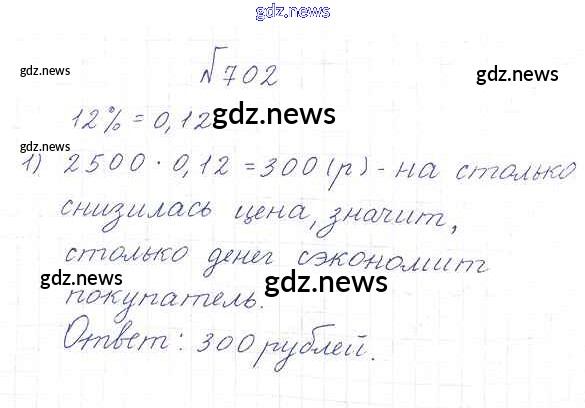 gdz.news
gdz.news №702 gdz.news
12% = 0,12 gdz.news
1) 2500 · 0,12 = 300 (р) - на столько
снизилась цена, значит,
столько денег сэкономит
gdz.news gdz.news
покупатель.
Ответ: 300 рублей.